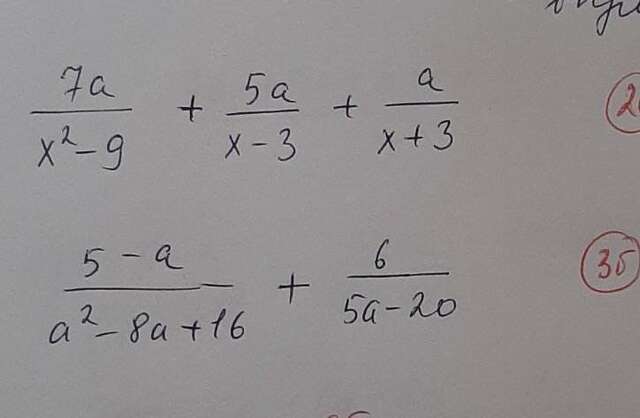 7a/(x²-9) + 5a/(x-3) + a/(x+3)
(5-a)/(a²-8a+16) + 6/(5a-20)